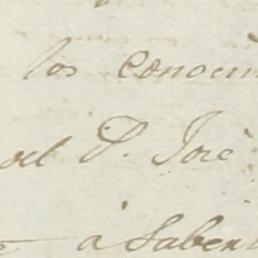 los conocim
del P. José
a Saber